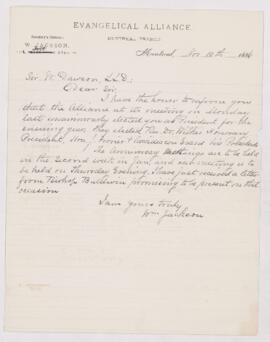 EVANGELICAL ALLIANCE.
MONTREAL BRANCH
Secretary's Address:
W. JACKSON,
Montreal, Nov 12th 188
Sir W Dawson, LLD;
Dear Sir
I have the honor to inform you
that the Alliance at its meeting on Monday
last unanimously elected you as President for the
ensuing year, they elected Rev Dr. Wilkes Honorary
President, Hon J
The Anniversary Meetings are to be held
in the second week in Jan, and our meeting is to
be held on Thursday Evening. I have just received a letter
from Bishop Baldwin promising to be present on that
occasion
I am yours truly
Wm Jackson